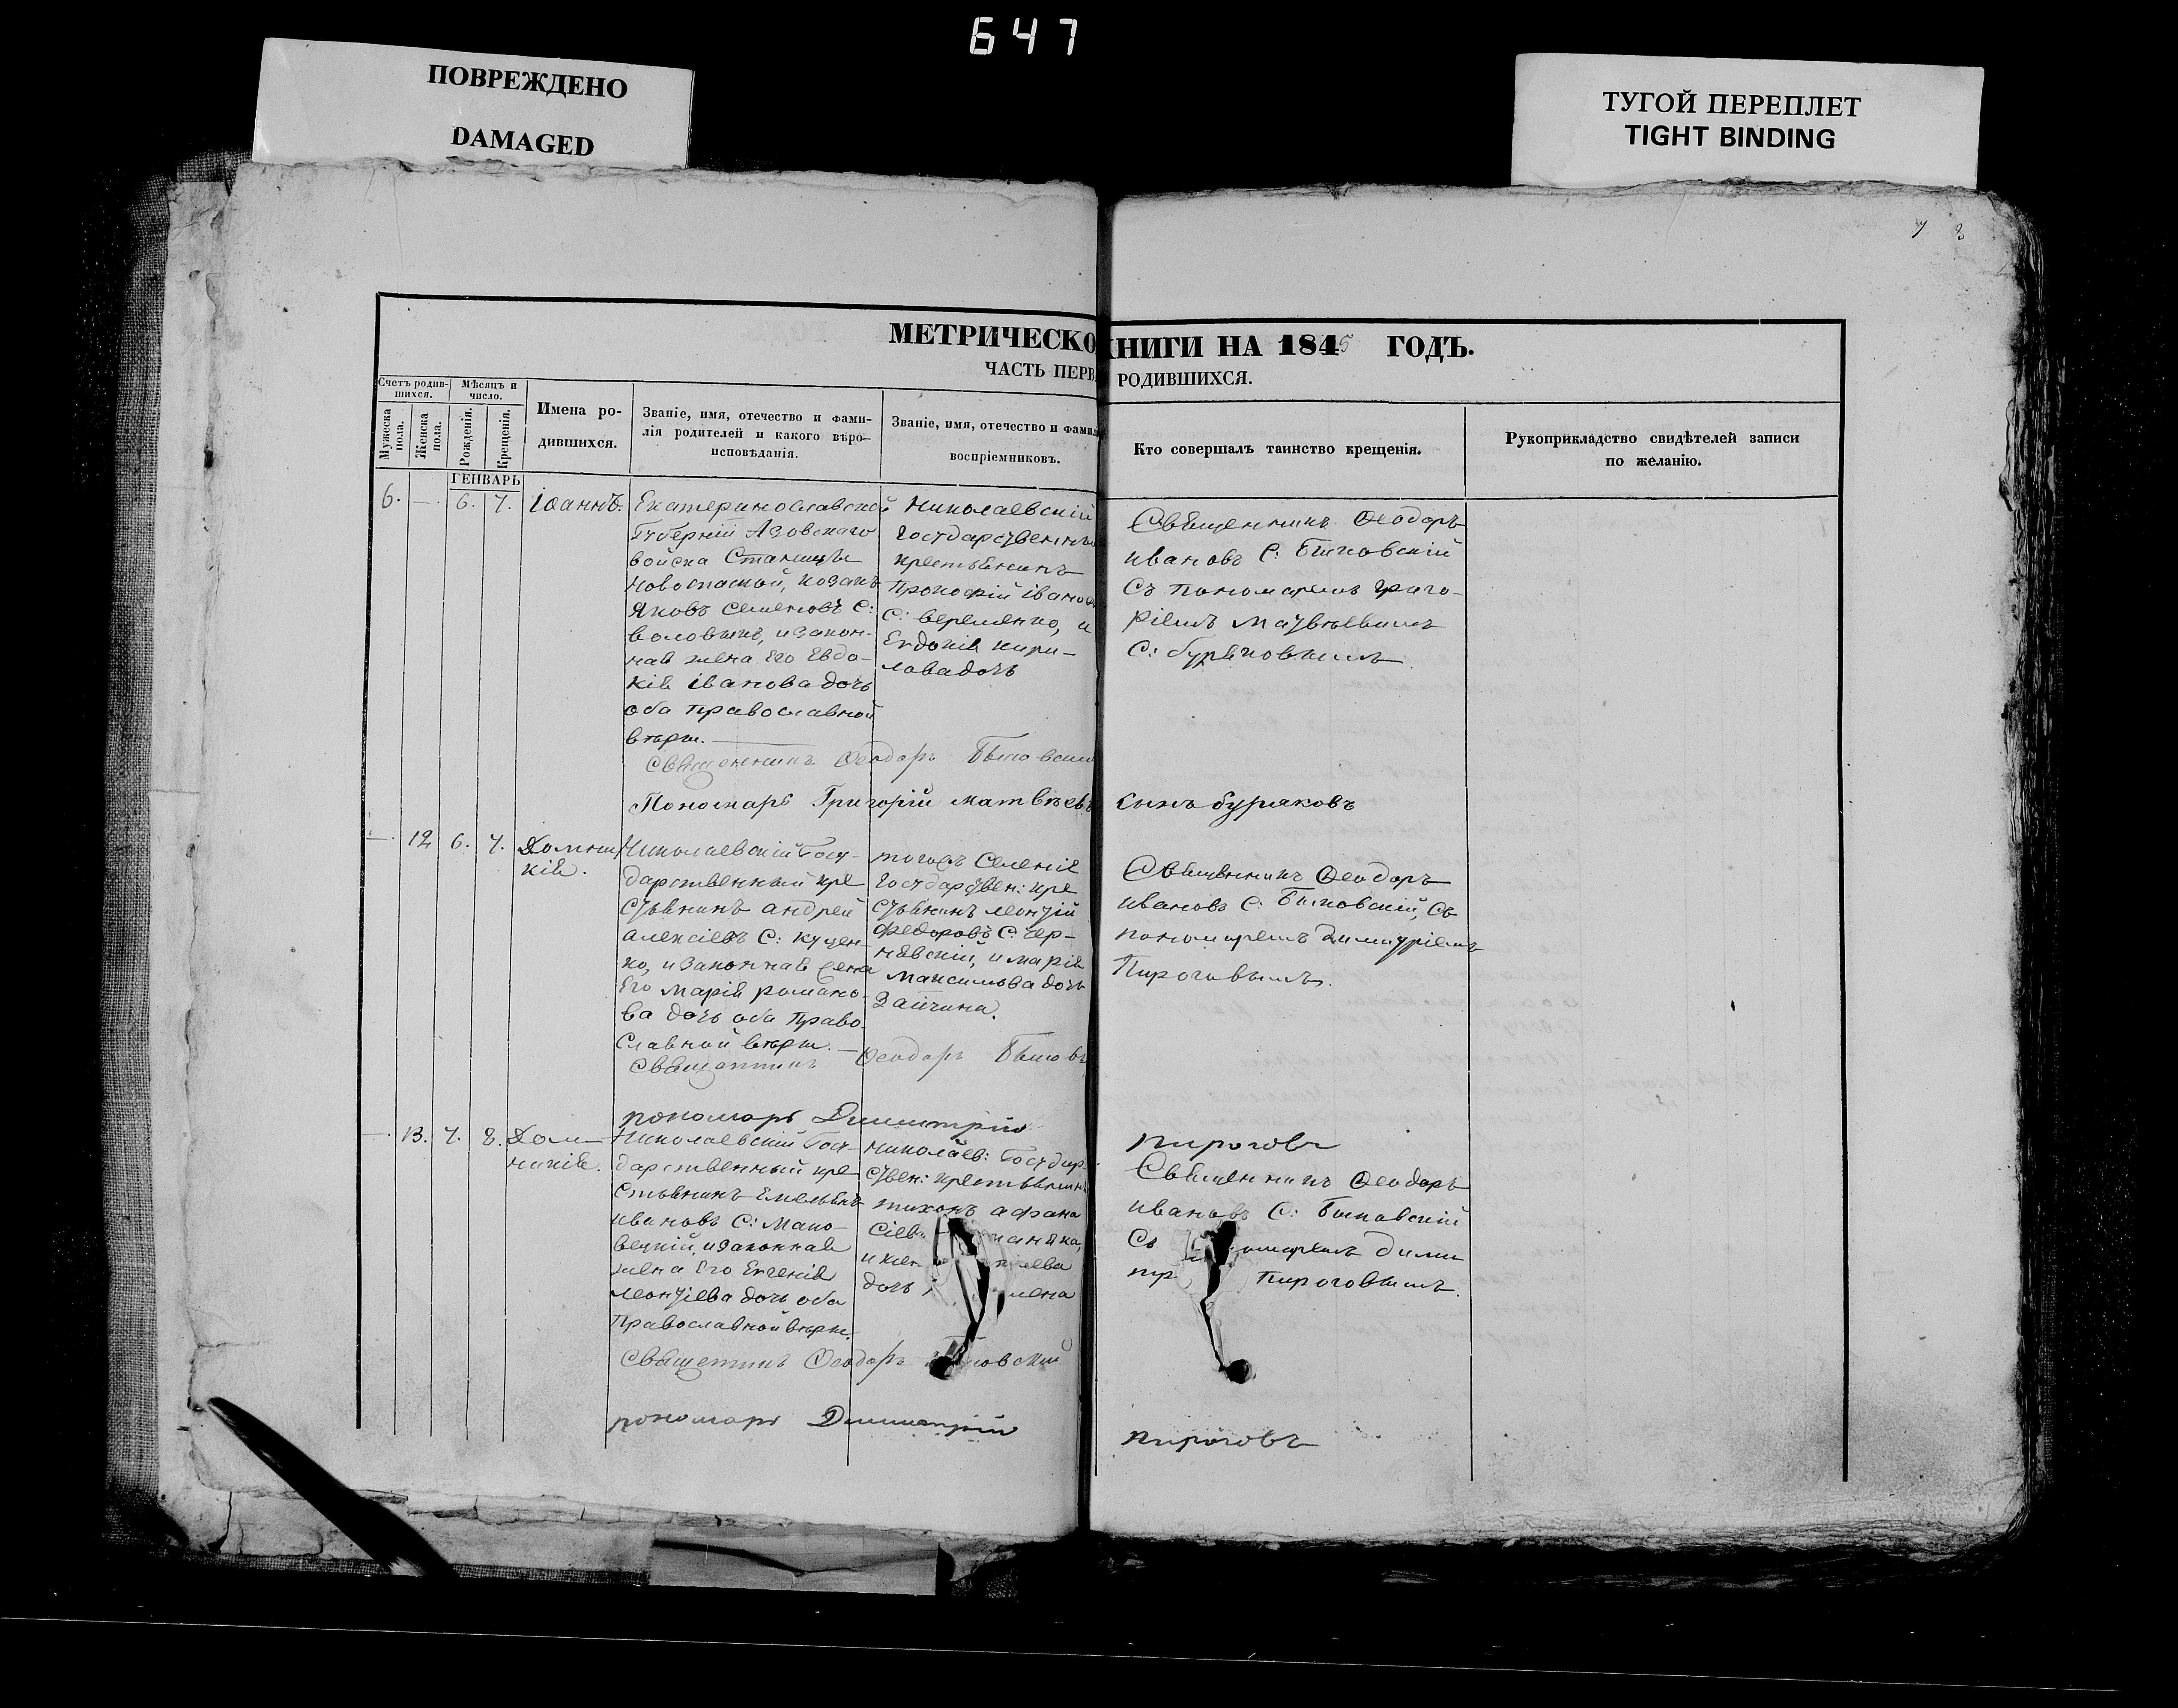 647
ПОВРЕЖДЕНО
DAMAGED
ТУГОЙ ПЕРЕПЛЕТ
TIGHT BINDING
МЕТРИЧЕСКО
НИГИ НА 1845 ГОДЪ.
ЧАСТЬ ПЕРВ
РОДИВШИХСЯ.
Счетъ родив-
шихся.
Мужеска пола.
Женска пола.
Мѣсяцъ и
число.
Рожденія.
Крещенія.
Имена ро-
дившихся.
Званіе, имя, отечество и фами-
лія родителей и какого вѣро-
исповѣданія.
Званіе, имя, отечество и фамил
воспріемниковъ.
Кто совершалъ таинство крещенія.
Рукоприкладство свидѣтелей записи
по желанію.
ГЕНВАРЬ
6. — 6. 7. Іоаннъ.
Екатеринославской
Губерніи Азовскаго
войска Станицы
Новоспаской, козакъ
Яковъ Семеновъ С:
Воловикъ, и закон-
ная жена Его Евдо-
кія Іванова дочь
оба православной
вѣры.
Николаевскій
Государственны
крестьянинъ
Прокофій Івановъ
С: Веременко, и
Евдокія Кири-
лова дочь
Священникъ Ѳеодоръ
Ивановъ С: Быковскій
Съ пономаремъ Григо-
ріемъ Матвѣевымъ
С: Буряковымъ
Священникъ Ѳеодоръ
Пономарь Григорій Матвѣевъ сынъ Буряковъ
— 12 6. 7. Домни-
кія.
Николаевскій Госу-
дарственный кре
стьянинъ Андрей
Алексіевъ С: Куцен-
ко, и законная жена
Его Марія Романо-
ва дочь оба Право-
славной вѣры.
тогожъ Селенія
Государствен: кре
стьянинъ Леонтій
Федоровъ С: Чер-
нявскій, и Марія
Максимова дочь
Зайчина.
Священникъ Ѳеодоръ
Ивановъ С: Быковскій, Съ
пономаремъ Димитріемъ
Пироговымъ.
Священникъ Ѳеодоръ
пономарь Димитрій
пироговъ
— 13. 7. 8. Дом-
никія.
Николаевскій Госу-
дарственный кре
стьянинъ Емельянъ
Ивановъ С: Мако-
вецкій, и законная
жена Его Евгенія
Леонтіева дочь оба
Православной вѣры.
Николаев: Государ-
ствен: крестьянинъ
Тихонъ Афана
сіев
дочь
Священникъ Ѳеодоръ
Ивановъ С: Быковскій
Съ
Пироговымъ.
Священникъ Ѳеодоръ
пономарь Димитрій
пироговъ